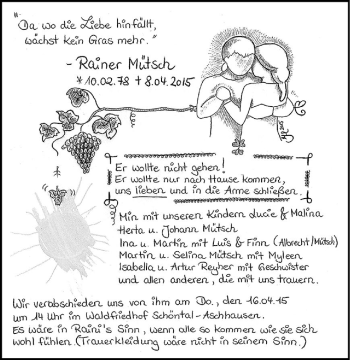 "Da wo die Liebe hinfällt,
wächst kein Gras mehr."
- Rainer Mütsch
*10.02.78 + 8.04.2015
Er wollte nicht gehen!
Er wollte nur nach Hause kommen,
uns lieben und in die Arme schließen.
Min mit unseren Kindern Lucie & Malina
Herta u. Johann Mütsch
Ina u. Martin mit Luis & Finn (Albrecht/Mütsch)
Martin u. Selina Mütsch mit Myleen
Isabella u. Artur Reyher mit Geschwister
und allen anderen, die mit uns trauern.
Wir verabschieden uns von ihm am Do., den 16.04.15
um 14 Uhr im Waldfriedhof Schöntal-Aschhausen.
Es wäre in Raini's Sinn, wenn alle so kommen wie sie sich
wohl fühlen. (Trauerkleidung wäre nicht in seinem Sinn.)